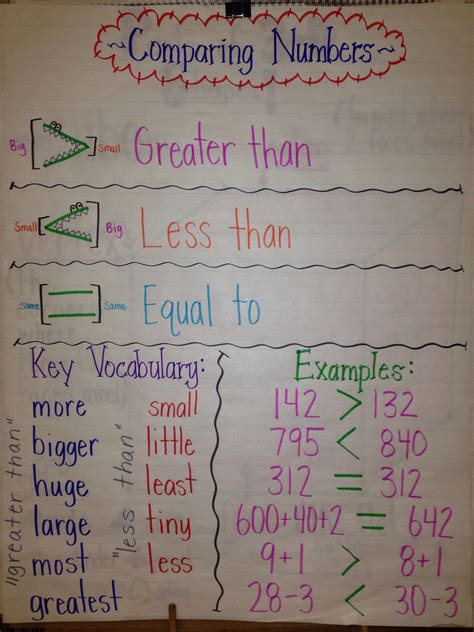 ~Comparing Numbers~
Big > Small Greater than
Small < Big Less than
Same = Same Equal to
Key Vocabulary:
"greater than"
more
bigger
huge
large
most
greatest
"less than"
small
little
least
tiny
less
Examples:
142 > 132
795 < 840
312 = 312
600+40+2 = 642
9+1 > 8+1
28-3 < 30-3